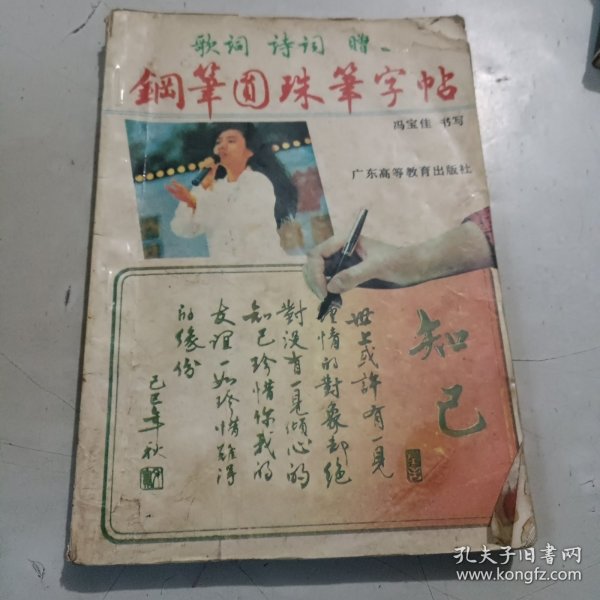 歌词 诗词 赠
鋼筆圆珠筆字帖
冯宝佳 书写
广东高等教育出版社
知己
世上或許有一見
鍾情的對象却絕
對没有一見傾心的
知己珍惜你我的
友誼一如珍惜難得
的緣份
己巳年秋
孔夫子旧书网
www.kongfz.com